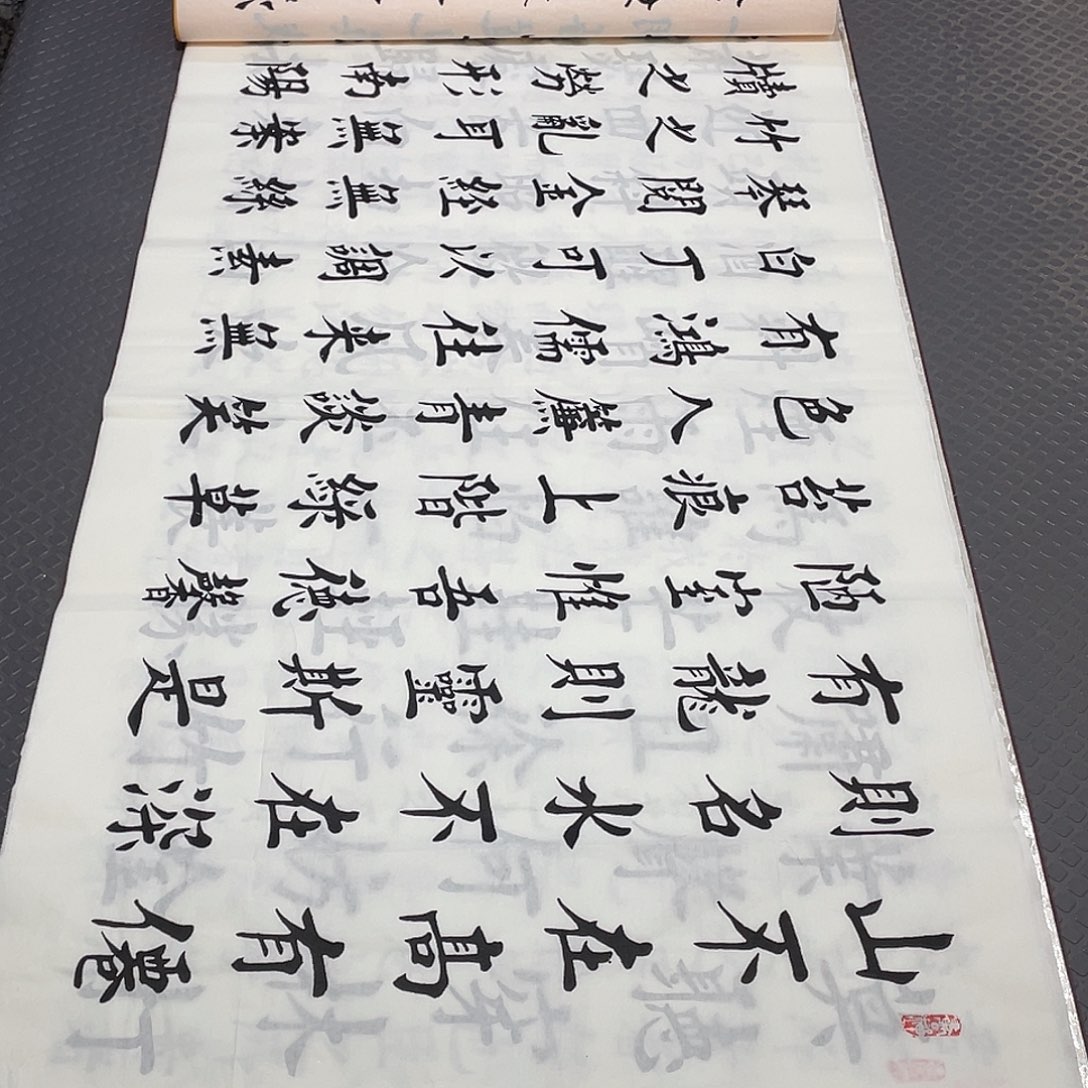 山不在高有僊
則名水不在深
有龍則靈斯是
陋室惟吾德馨
苔痕上階綠草
色入簾青談笑
有鴻儒往來無
白丁可以調素
琴閱金經無絲
竹之亂耳無案
牘之勞形南陽